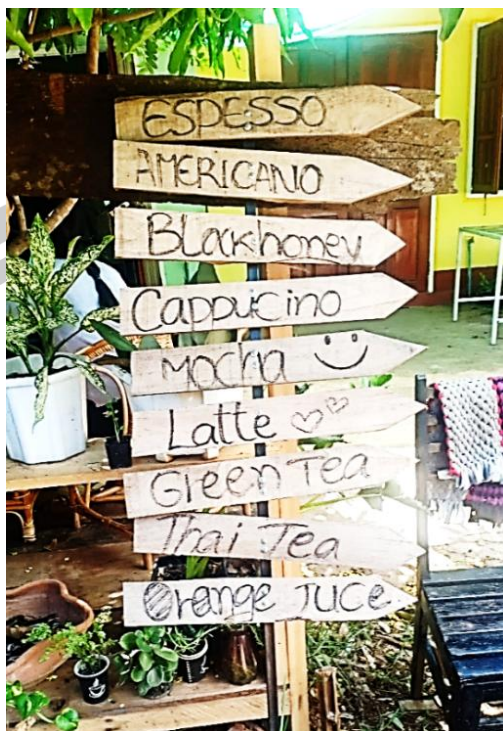 ESPESSO
AMERICANO
Blackhoney
Cappucino
Mocha
Latte
Green Tea
Thai Tea
Orange Juce